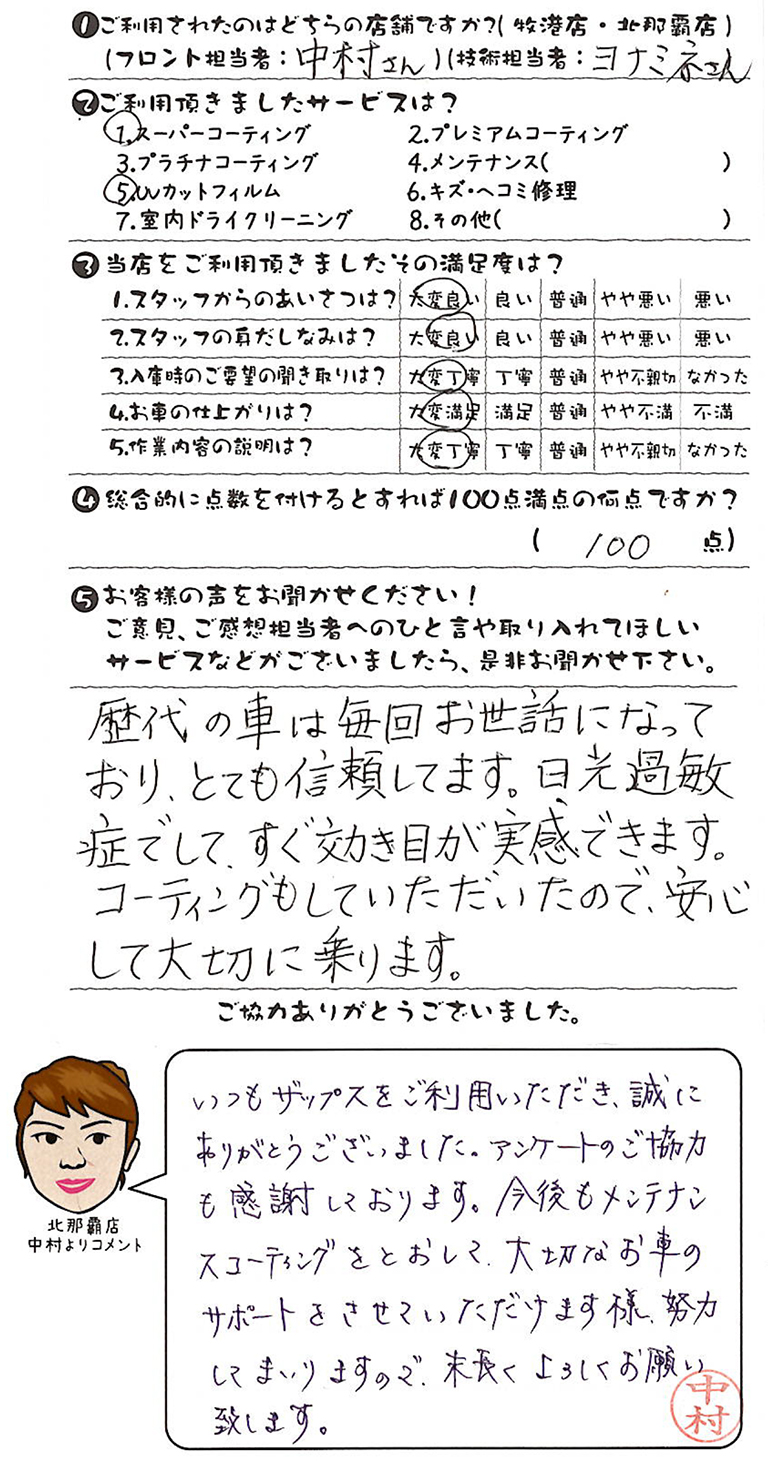 ❶ご利用されたのはどちらの店舗ですか?(牧港店・北那覇店)
(フロント担当者:中村さん)(技術担当者:ヨナミネさん
❷ご利用頂きましたサービスは?
1.スーパーコーティング 2.プレミアムコーティング
3.プラチナコーティング 4.メンテナンス( )
5.UVカットフィルム 6.キズ・ヘコミ修理
7.室内ドライクリーニング 8.その他( )
❸当店をご利用頂きましたその満足度は?
1.スタッフからのあいさつは? 大変良い 良い 普通 やや悪い 悪い
2.スタッフの身だしなみは? 大変良い 良い 普通 やや悪い 悪い
3.入庫時のご要望の聞き取りは? 大変丁寧 丁寧 普通 やや不親切 なかった
4.お車の仕上がりは? 大変満足 満足 普通 やや不満 不満
5.作業内容の説明は? 大変丁寧 丁寧 普通 やや不親切 なかった
❹総合的に点数を付けるとすれば100点満点の何点ですか?
( 100 点)
❺お客様の声をお聞かせください!
ご意見、ご感想担当者へのひと言や取り入れてほしい
サービスなどがございましたら、是非お聞かせ下さい。
歴代の車は毎回お世話になって
おり、とても信頼してます。日光過敏
症でして、すぐ効き目が実感できます。
コーティングもしていただいたので、安心
して大切に乗ります。
ご協力ありがとうございました。
いつもザップスをご利用いただき、誠に
ありがとうございました。アンケートのご協力
も感謝しております。今後もメンテナン
スコーティングをとおして、大切なお車の
サポートをさせていただけます様、努力
してまいりますので、末長くよろしくお願い
致します。
中村
北那覇店
中村よりコメント